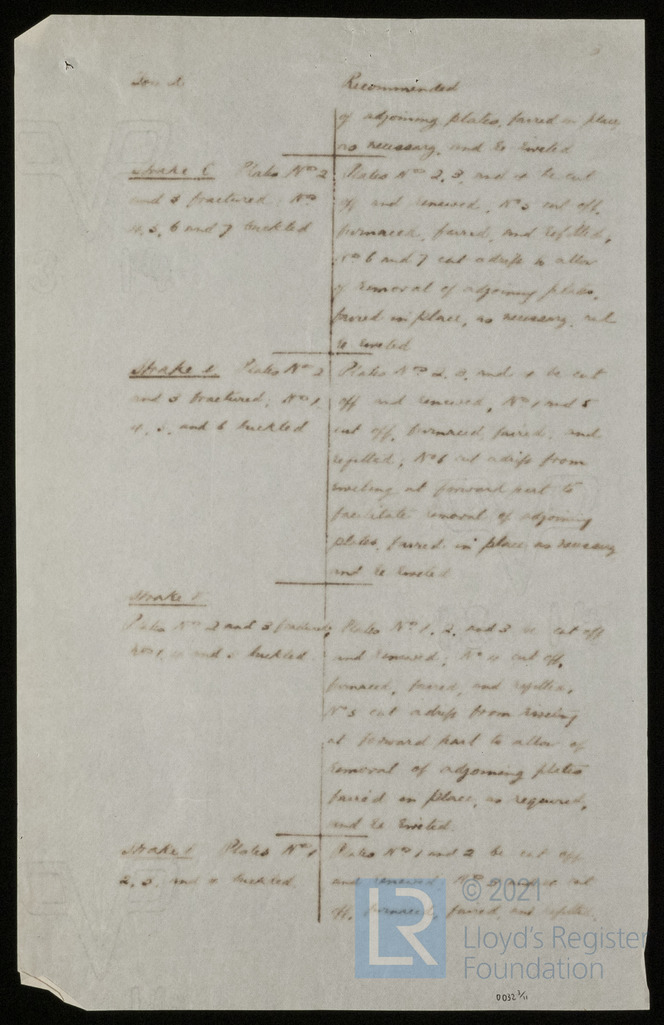 Recommended
of adjoining plates, faired in place,
as necessary, and re riveted
Strake Plates Nos 2
and 3 fractured, Nos
4, 5, 6 and 7 buckled
Plates Nos 2, 3, and 4 be cut
off and renewed, No 5 cut off,
furnaced, faired, and refitted,
Nos 6 and 7 cut adrift to allow
of removal of adjoining plates,
faired in place, as necessary, and
re riveted
Strake Plates Nos 2
and 3 fractured, Nos 1,
4, 5, and 6 buckled
Plates Nos 2, 3, and 4 be cut
off and renewed, Nos 1 and 5
cut off, furnaced, faired, and
refitted, No 6 cut adrift from
riveting at forward part to
facilitate removal of adjoining
plates, faired in place as necessary
and re riveted
Strake
Plates Nos 2 and 3 fractured,
Nos 1, and buckled
Plates Nos 1, 2, and 3 be cut off
and renewed, No 4 cut off,
furnaced, faired, and refitted,
No 5 cut adrift from riveting
at forward part to allow of
removal of adjoining plates
faired in place, as required,
and re riveted.
Strake Plates Nos 1
2, 3, and 4 buckled.
Plates Nos 1 and 2 be cut off
and renewed Nos 3 and 4 cut
off, furnaced, faired, and refitted.
LR
© 2021
Lloyd's Register
Foundation
0032 3/11